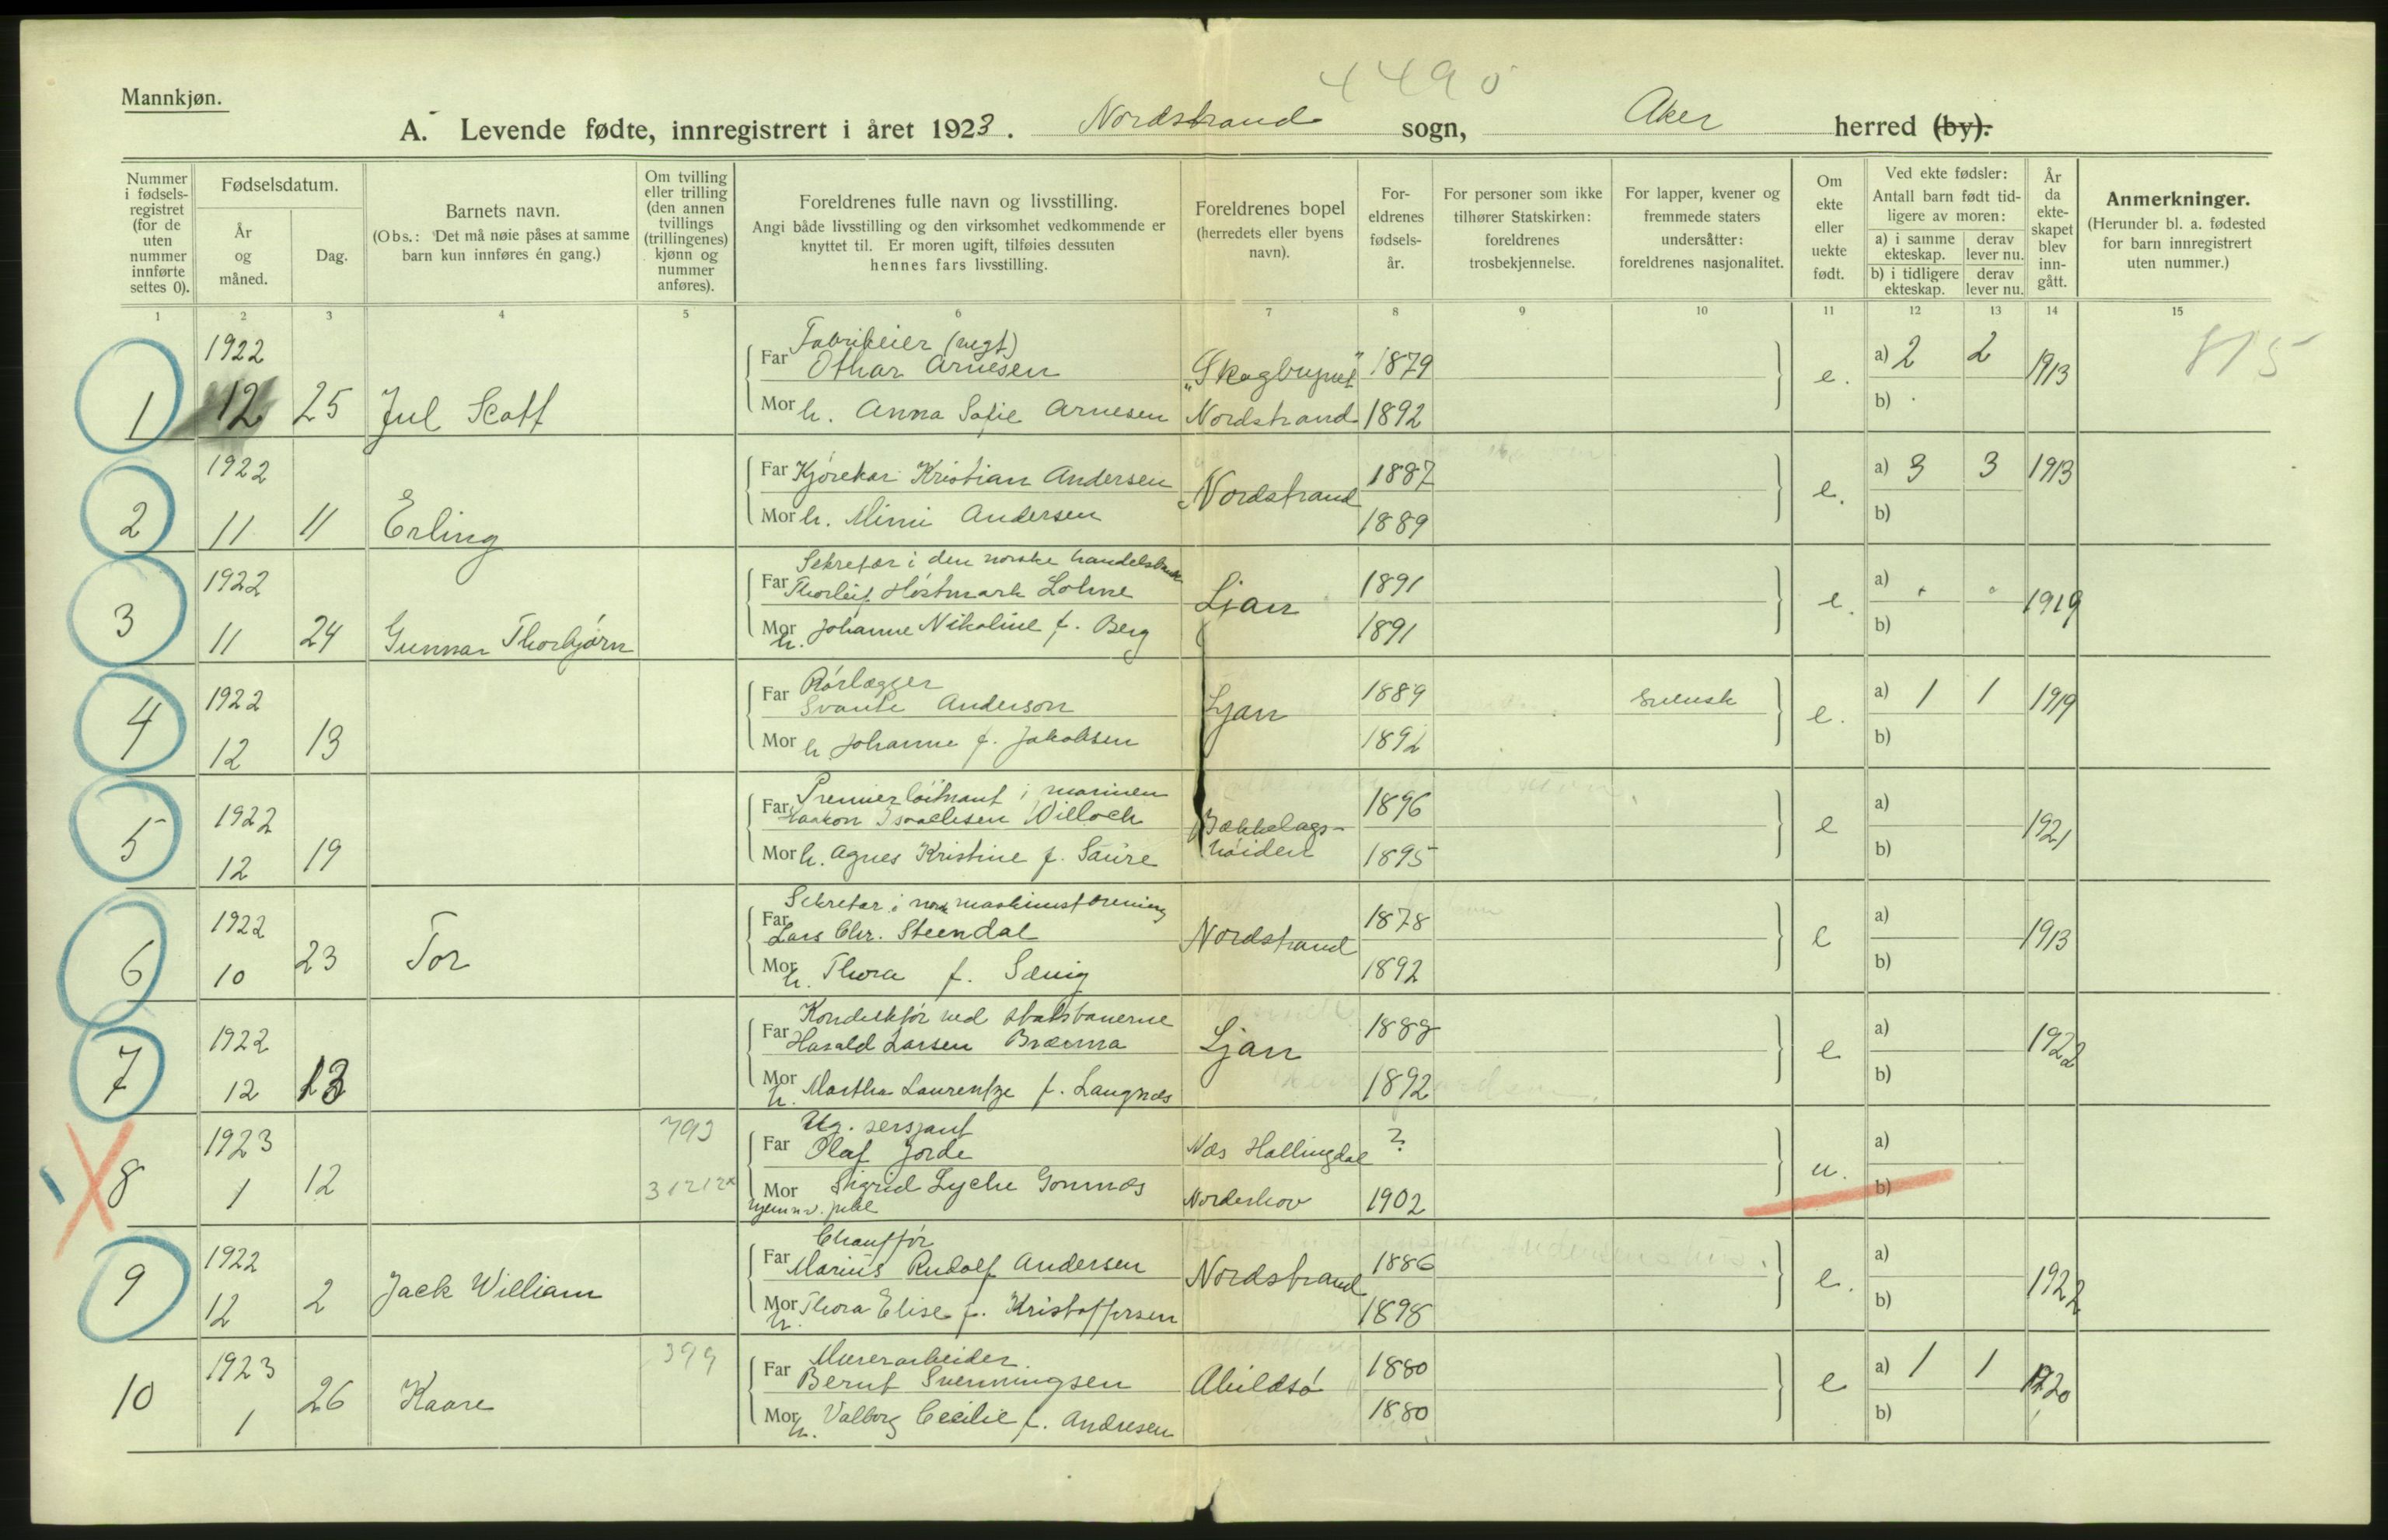 4490
Mannkjøn.
A. Levende fødte, innregistrert i året 1923. Nordstrand sogn, Aker herred (by).
Nummer i fødsels-registret (for de uten nummer innførte settes 0).
Fødselsdatum.
År og måned.
Dag.
Barnets navn.
(Obs.: Det må nøie påses at samme barn kun innføres én gang.)
Om tvilling eller trilling (den annen tvillings (trillingenes) kjønn og nummer anføres).
Foreldrenes fulle navn og livsstilling.
Angi både livsstilling og den virksomhet vedkommende er knyttet til. Er moren ugift, tilføies dessuten hennes fars livsstilling.
Foreldrenes bopel (herredets eller byens navn).
For-eldrenes fødsels-år.
For personer som ikke tilhører Statskirken: foreldrenes trosbekjennelse.
For lapper, kvener og fremmede staters undersåtter: foreldrenes nasjonalitet.
Om ekte eller uekte født.
Ved ekte fødsler: Antall barn født tid-ligere av moren:
a) i samme ekteskap. derav lever nu.
b) i tidligere ekteskap. derav lever nu.
År da ekte-skapet blev inn-gått.
Anmerkninger.
(Herunder bl. a. fødested for barn innregistrert uten nummer.)
1 2 3 4 5 6 7 8 9 10 11 12 13 14 15
1922 Fabrikeier (vegt) 815
Far Othar Arnesen "Skogbrynet" 1879 e. a) 2 2 1913
1 12 25 Jul Scott Mor h. Anna Sofie Arnesen Nordstrand 1892 b)
1922 Far Kjørekar Kristian Andersen Nordstrand 1887 e. a) 3 3 1913
2 11 11 Erling Mor h. Mimi Andersen 1889 b)
1922 Sekretær i den norske handelsbank
Far Thorleif Høstmark Lohne Ljan 1891 e. a) 1919
3 11 24 Gunnar Thorbjørn Mor h. Johanne Nikoline f. Berg 1891 b)
1922 Rørlægger
Far Svante Anderson Ljan 1889 svensk e. a) 1 1 1919
4 12 13 Mor h. Johanne f. Jakobsen 1892 b)
1922 Premierløitnant i marinen
Far Haakon Israelsen Willoch Bækkelags- 1896 e a) 1921
5 12 19 Mor h. Agnes Kristine f. Saure høiden 1895 b)
1922 Sekretær i norsk maskinistforening
Far Lars Chr. Steendal Nordstrand 1878 e a) 1913
6 10 23 Tor Mor h. Thora f. Sænig 1892 b)
1922 Konduktør ved statsbanerne
Far Harald Larsen Brænna Ljan 1889 e a) 1922
7 12 13 Mor h. Martha Laurentze f. Langnæs 1892 b)
1923 793 Ug. sersjant
Far Olaf Jorde Næs Hallingdal ? u. a)
8 1 12 Mor Sigrid Lyche Gomnæs Norderhov 1902 b)
1922 Chauffør
Far Marius Rudolf Andersen Nordstrand 1886 e. a) 1922
9 12 2 Jack William Mor h. Thora Elise f. Kristoffersen 1898 b)
1923 399 Murerarbeider.
Far Bernt Svenningsen Abildsø 1880 e a) 1 1 1920
10 1 26 Kaare Mor h. Valborg Cecilie f. Andresen 1880 b)